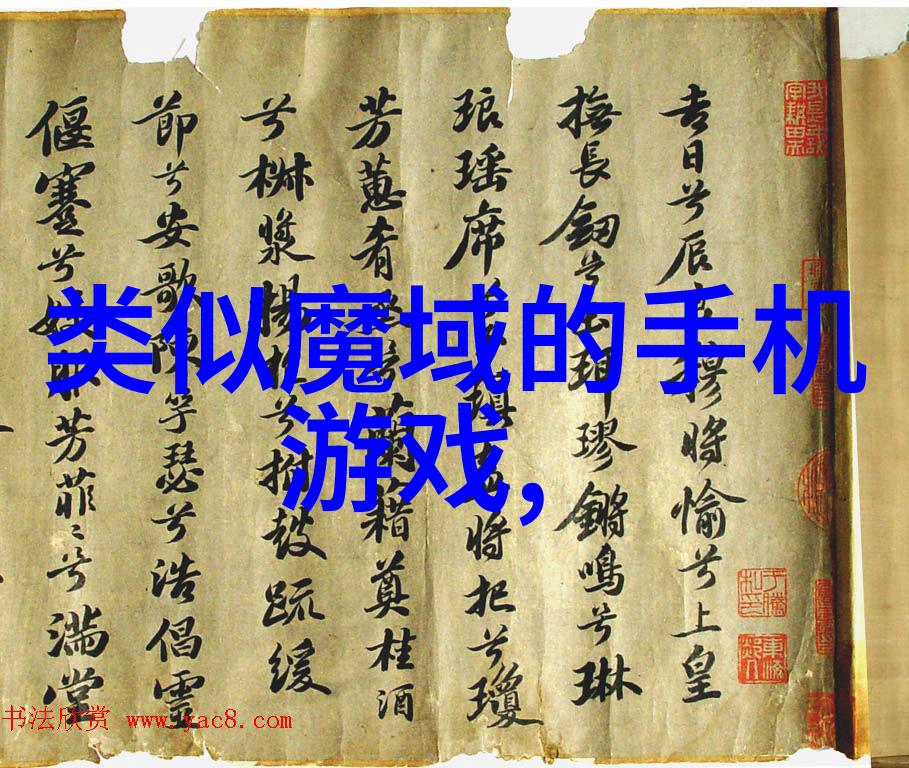 类似魔域的手机
游戏,
吉日兮辰穆将愉兮上皇
撫長劒兮玉珥璆鏘鳴兮琳
琅瑶席瑱将把兮瓊
芳蕙肴蘭藉奠桂酒
兮椒漿揚枹兮拊鼓疏緩
節兮安歌陳竽瑟兮浩倡靈
偃蹇兮姣服芳菲〻兮滿堂
书法欣赏 www.yac8.com